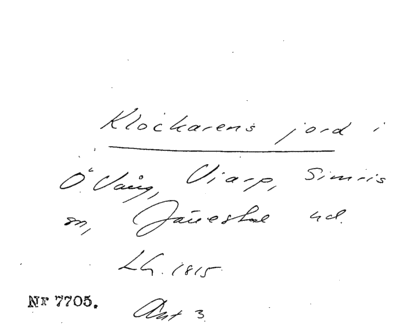 Klockarens jord i
Ö Vång, Viarp, Simris
sn, Järrestad hd.
LH. 1815
Akt 3
Nr 7705.